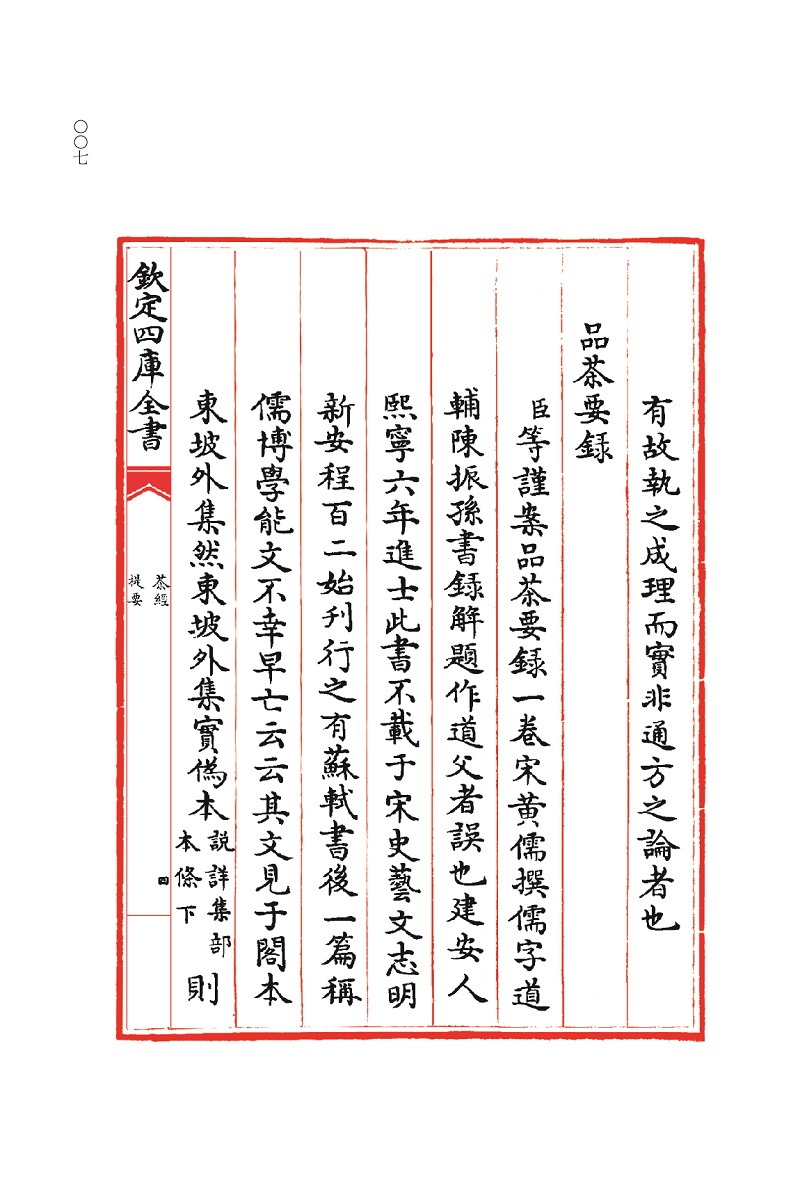 〇〇七
有故執之成理而實非通方之論者也
品茶要録
臣等謹案品茶要録一卷宋黄儒撰儒字道
輔陳振孫書録解題作道父者誤也建安人
熙寧六年進士此書不載于宋史藝文志明
新安程百二始刋行之有蘇軾書後一篇稱
儒博學能文不幸早亡云云其文見于閣本
東坡外集然東坡外集實偽本説詳集部本條下則
欽定四庫全書
茶經
提要
四